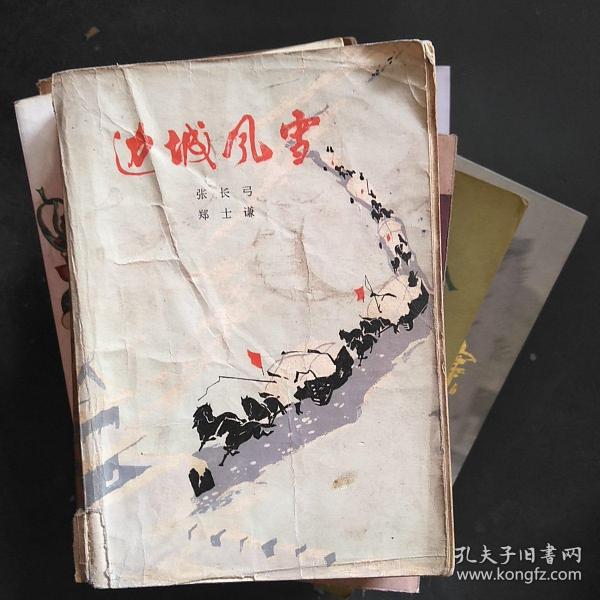 边城风雪
张长弓
郑士谦
孔夫子旧書网
www.kongfz.com